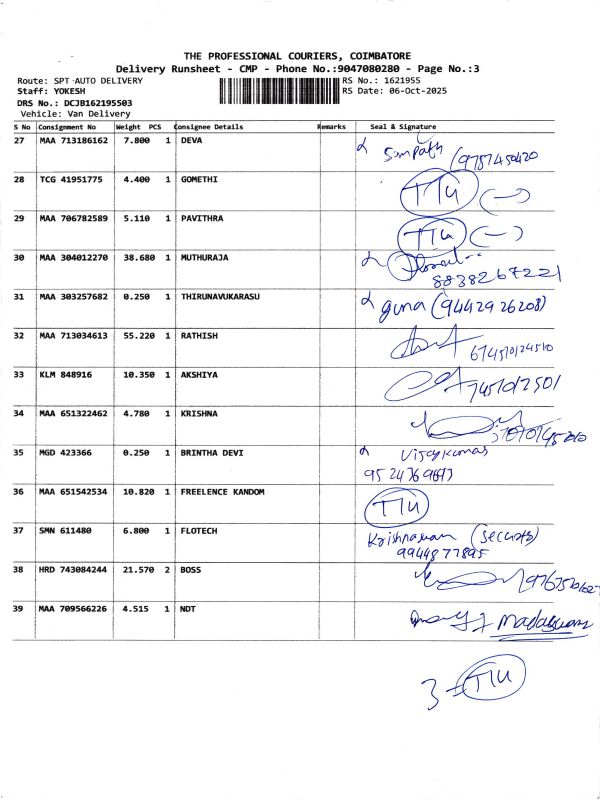 THE PROFESSIONAL COURIERS, COIMBATORE
Delivery Runsheet - CMP - Phone No.:9047080280 - Page No.:3
Route: SPT AUTO DELIVERY RS No.: 1621955
Staff: YOKESH RS Date: 06-Oct-2025
DRS No.: DCJB162195503
Vehicle: Van Delivery
S No Consignment No Weight PCS Consignee Details Remarks Seal & Signature
27 MAA 713186162 7.800 1 DEVA Sampath
28 TCG 41951775 4.400 1 GOMETHI T/U (-)
29 MAA 706782589 5.110 1 PAVITHRA T/U (-)
30 MAA 304012270 38.680 1 MUTHURAJA
8838267221
31 MAA 303257682 0.250 1 THIRUNAVUKARASU guna (9442926208)
32 MAA 713034613 55.220 1 RATHISH
33 KLM 848916 10.350 1 AKSHIYA
34 MAA 651322462 4.780 1 KRISHNA
35 MGD 423366 0.250 1 BRINTHA DEVI Vijaykumar
36 MAA 651542534 10.820 1 FREELENCE KANDOM T/U
37 SMN 611480 6.800 1 FLOTECH
9944877895
38 HRD 743084244 21.570 2 BOSS
39 MAA 709566226 4.515 1 NDT
3 - T/U